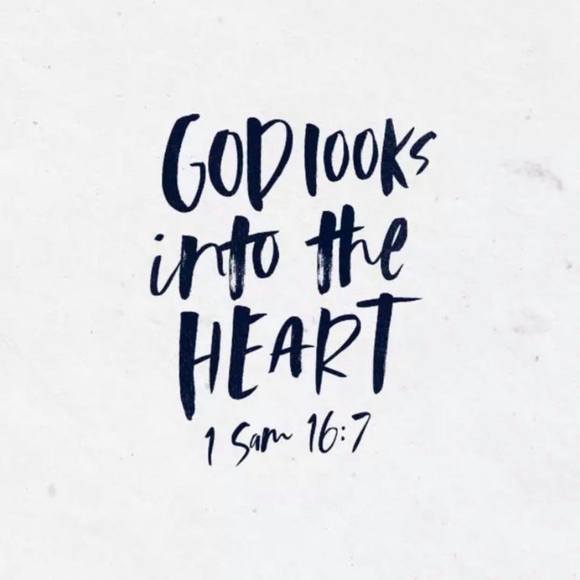 GOD looks
into the
HEART
1 Sam 16:7